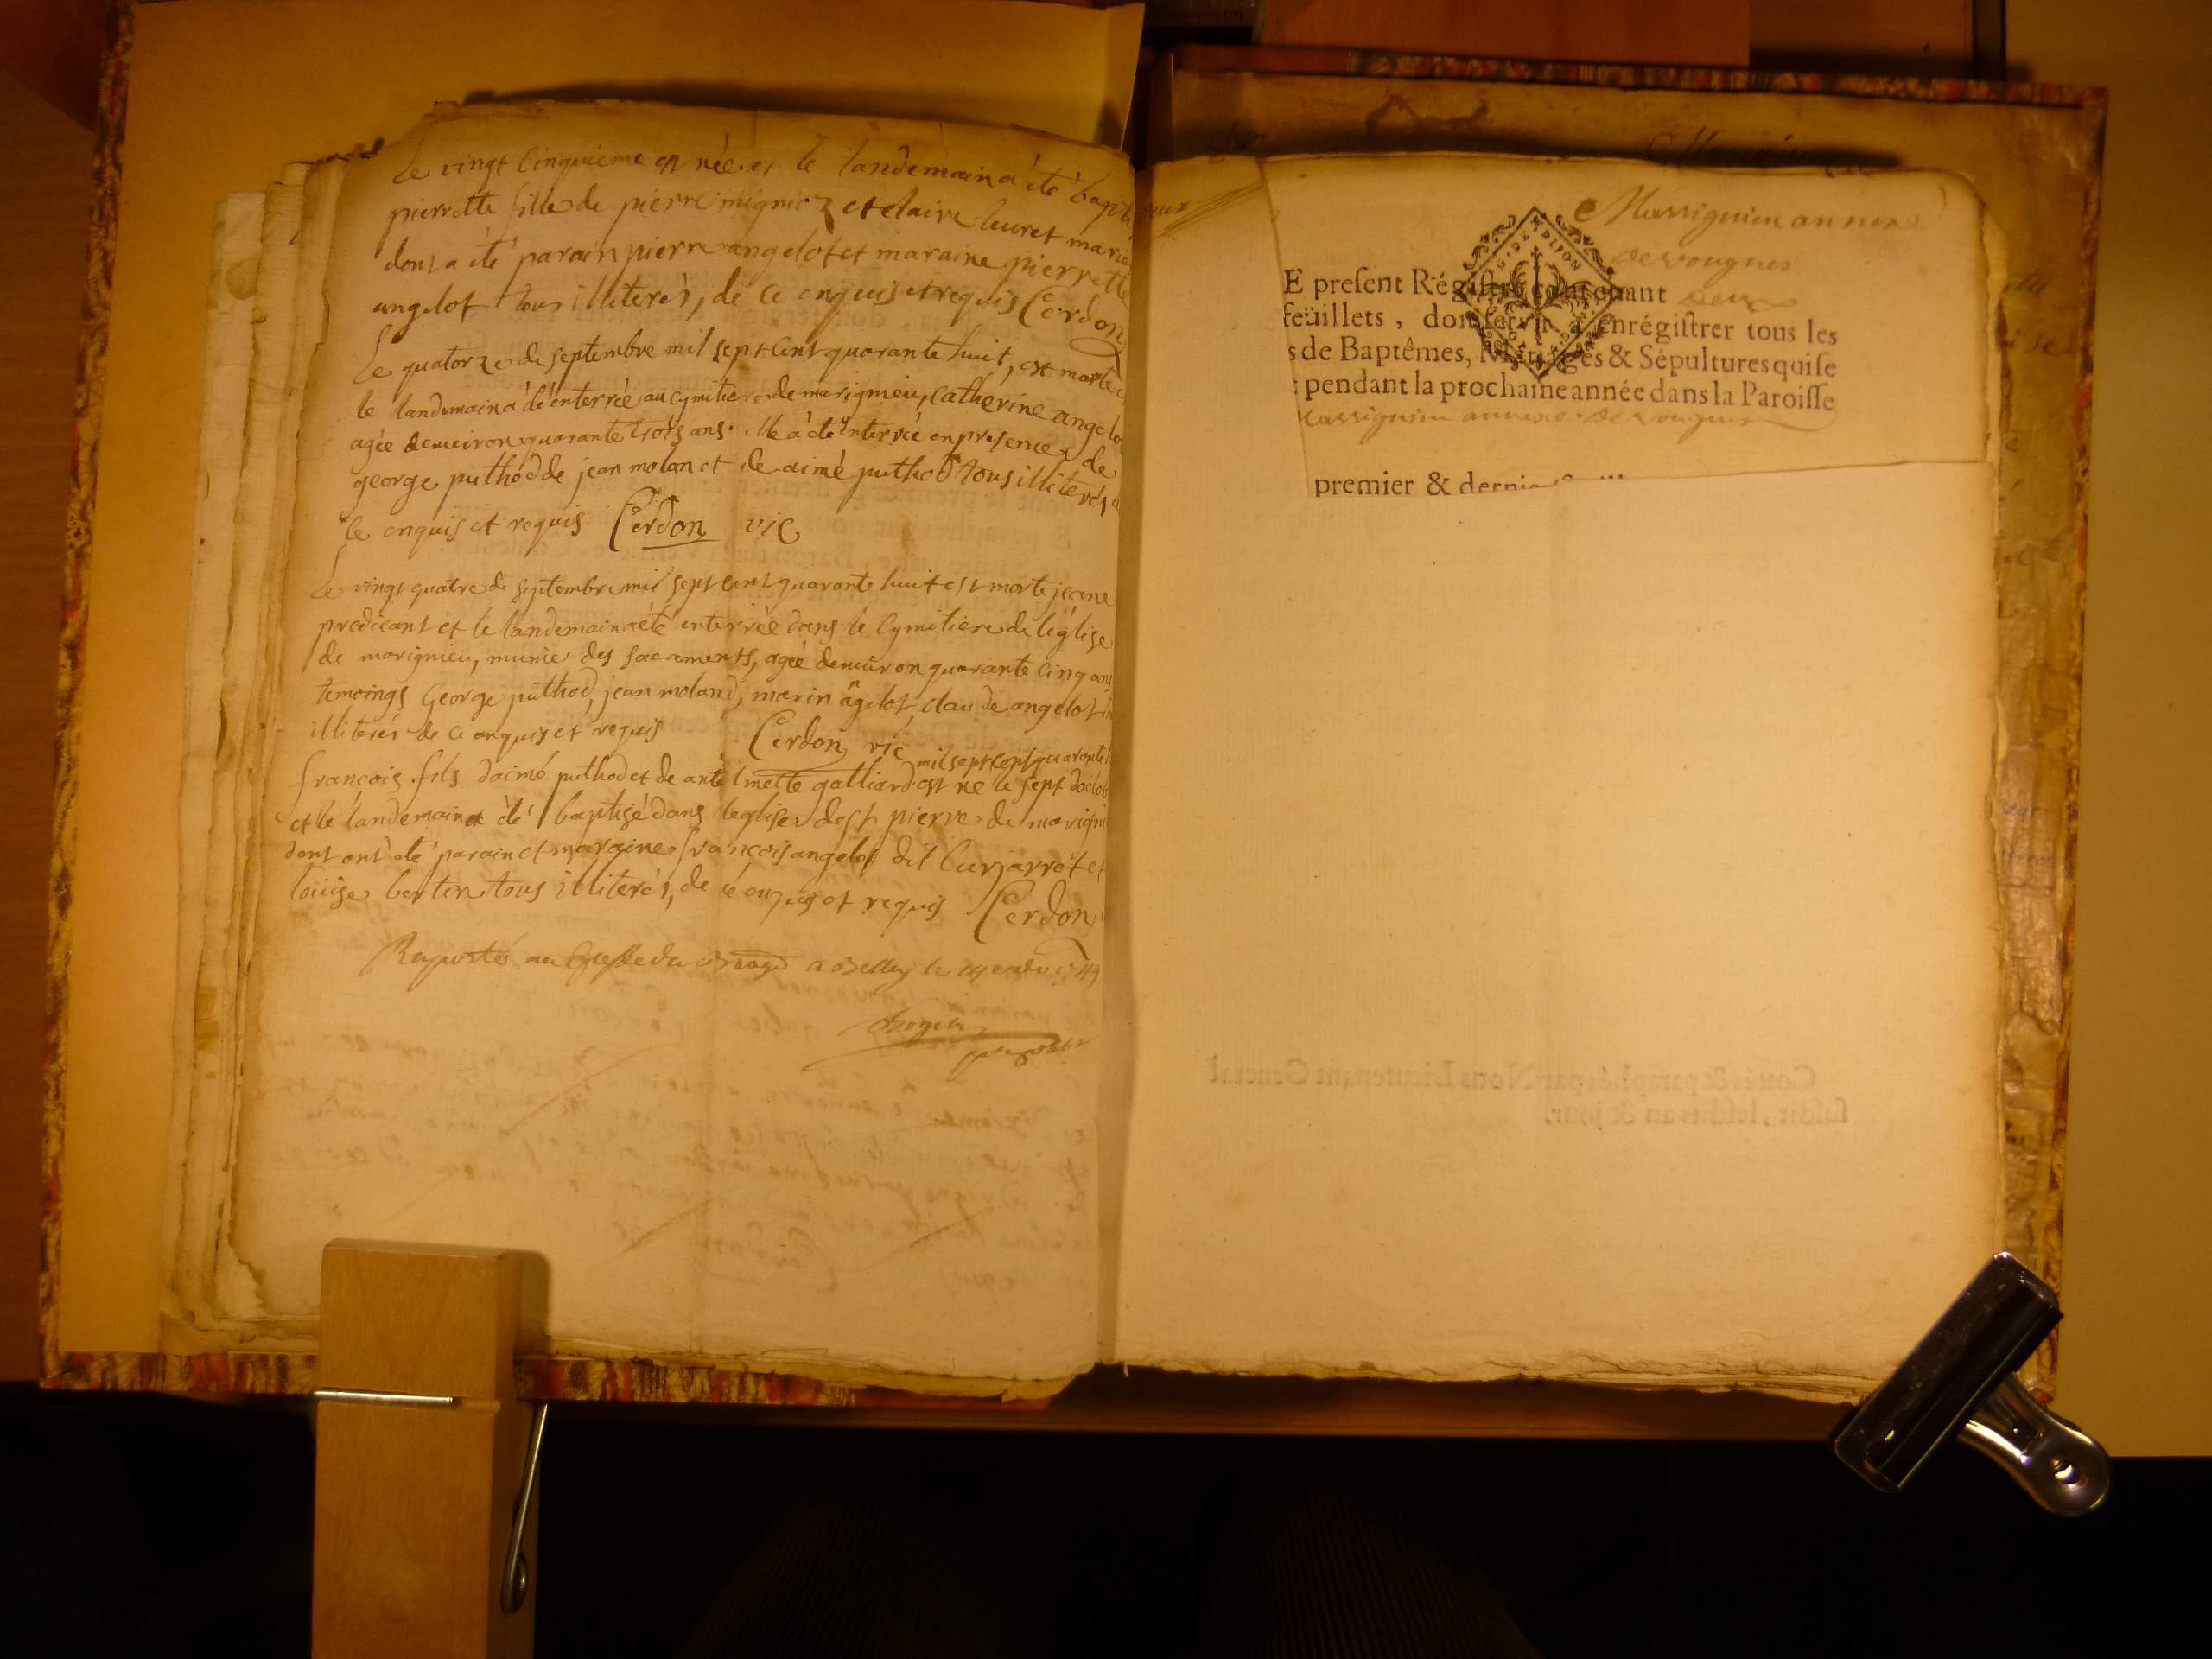 Le vingt cinquieme est née et le landemain a été bapt
pierrette fille de pierre mignioz et claire leuret marié
dont a été parain pierre angelot et maraine pierrette
angelot tous illiterés, de ce enquis et requis Cerdon
Le quatorze de septembre mil sept cent quarante huit, est morte
le landemain a été enterrée au cymitiere de marignieu, Catherine angelo
agée denviron quarante trois ans. elle a été enterrée en presence de
george puthod de jean molan et de aimé puthod tous illiterés
ce enquis et requis Cerdon vic
Le vingt quatre de septembre mil sept cent quarante huit est morte jeane
predicant et le landemain a été enterrée dans le Cymitiere de léglise
de marignieu, munie des sacrements, agée denviron quarante cinq ans
temoings George puthod, jean moland, marin ãgelot, claude angelot
illiterés de ce enquis et requis Cerdon vic
mil sept cent quarante
francois fils daimé puthod et de antelmette galliard est ne le sept doctob
et le landemain a été baptisé dans leglise de st pierre de marigni
dont ont été parain et maraine francois angelot dit Curjarret et
loüise bertin tous illiterés, de ce enquis et requis Cerdon
Raportés au Greffe du a Belley le 1749
Massignieu annexe
de vougnes
E present Régistre contenant deux
feüillets, doit servir à enrégistrer tous les
s de Baptêmes, Mariages & Sépultures qui se
pendant la prochaine année dans la Paroisse
Massignieu annexe de vougnes
premier & dernier
Cottés & paraphés par Nous Lieutenant General
susdit, lesdits an & jour.